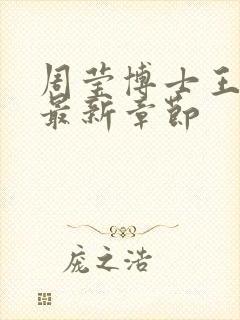 周莹博士王
最新章节
庞之浩